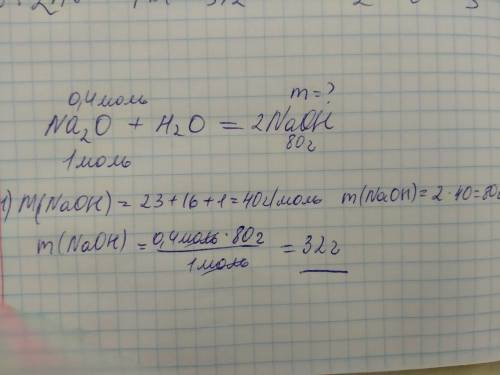 0,4 моль m = ?
Na₂O + H₂O = 2NaOH
1 моль 80г
1) M(NaOH) = 23+16+1=40г/моль m(NaOH)=2·40=80г
m(NaOH) = 0,4моль·80г / 1моль = 32г